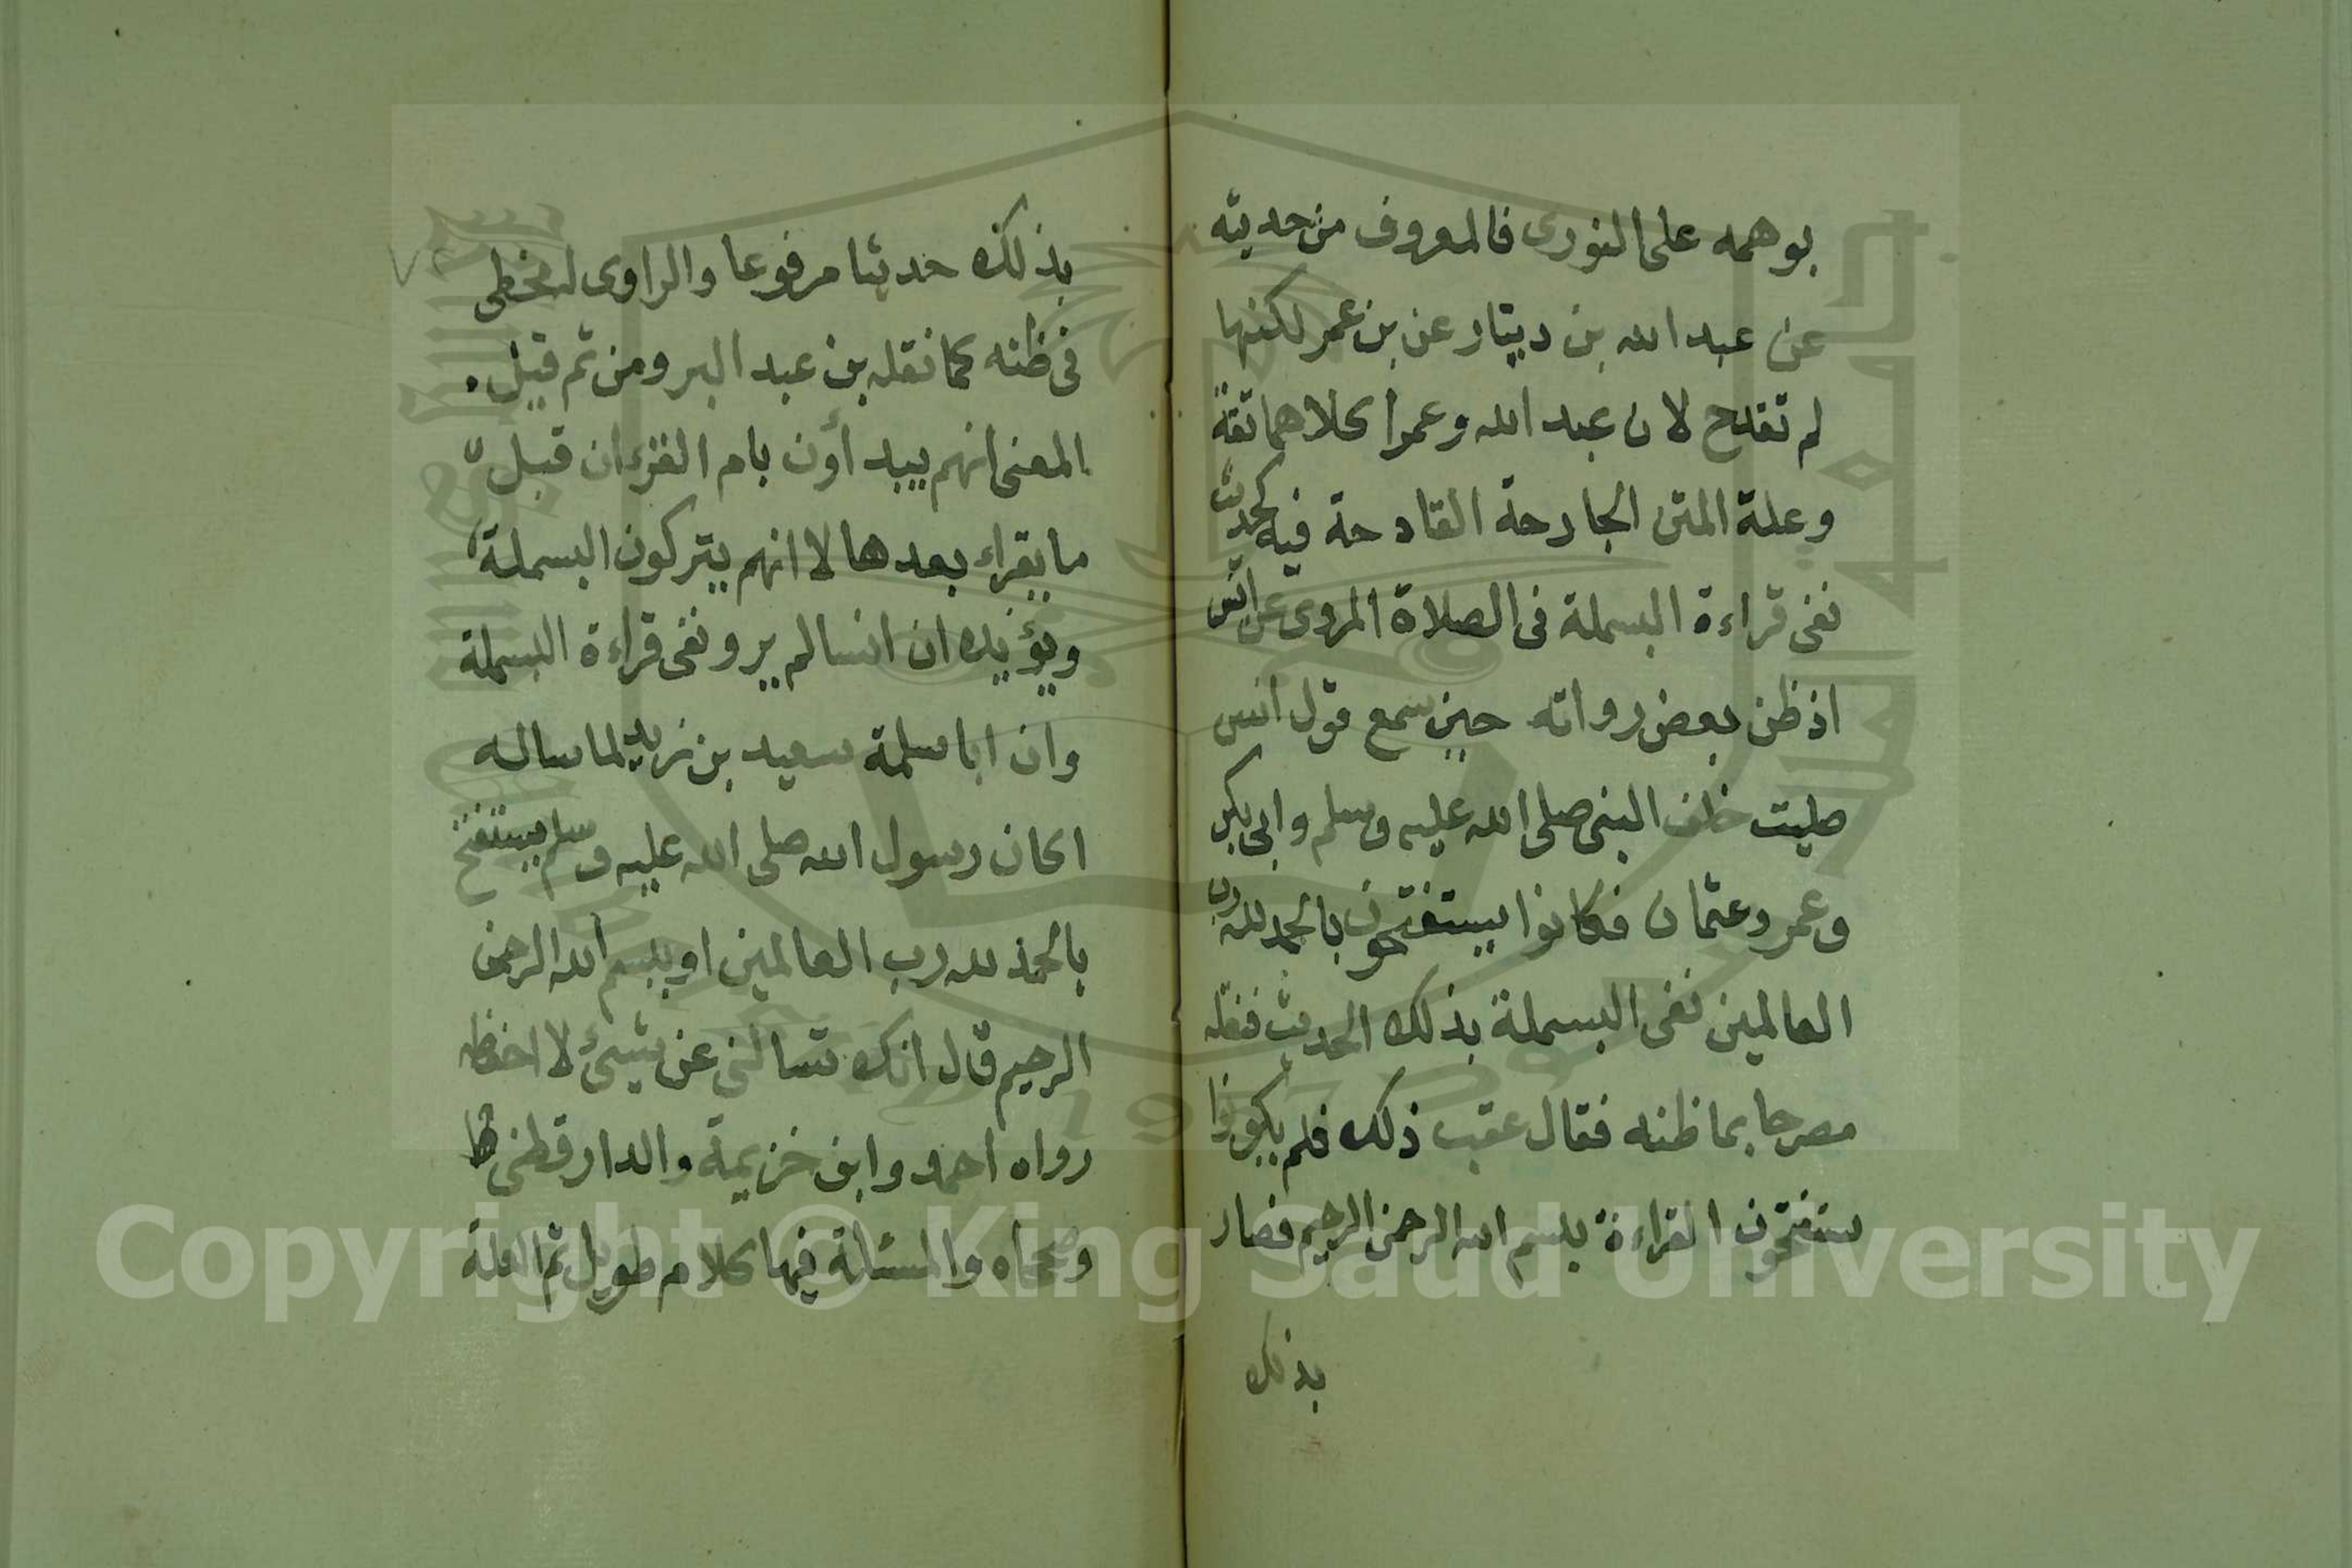 بوهمه على الثورى فالمعروف من حديثه
عن عبد الله بن دينار عن بن عمر لكنها
لم تقدح لان عبد الله وعمرا كلاهما ثقة
وعلة المتن الجارحة القادحة فيه كحديث
نفى قراءة البسملة فى الصلاة المروى عن انس
اذ ظن بعض رواته حين سمع قول انس
صليت خلف النبى صلى الله عليه وسلم وابى بكر
وعمر وعثمان فكانوا يستفتحون بالحمد لله رب
العالمين نفى البسملة بذلك الحديث فنقله
مصرحا بما ظنه فقال عقب ذلك فلم يكونوا
ستفتحون القراءة بسم الله الرحمن الرحيم فصار
بذلك
بذلك حديثا مرفوعا والراوى لمخطى
فى ظنه كما نقله بن عبد البر ومن ثم قيل
المعنى انهم يبدأون بام القرءان قبل
ما يقراء بعدها لا انهم يتركون البسملة
ويؤيده ان انسا لم يرو نفى قراءة البسملة
وان ابا سلمة سعيد بن زيد لما ساله
اكان رسول الله صلى الله عليه وسلم يستفتح
بالحمد لله رب العالمين او ببسم الله الرحمن
الرحيم قال انك تسالنى عن شيئ لا احفظه
رواه احمد وابن خزيمة والدارقطنى
وصححاه والمسئلة فيها كلام طويل ثم العلة
Copyright © King Saud University
1957